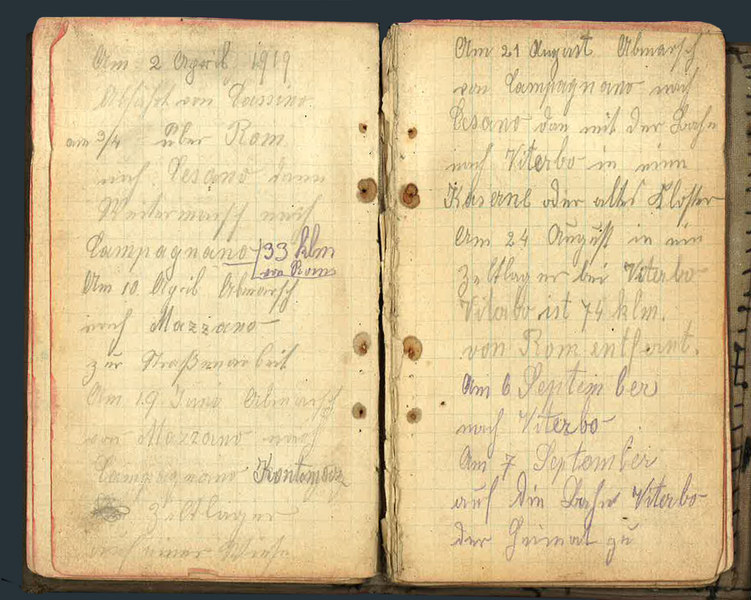 Am 2 April 1919
Abfahrt von Cassino
am 3/4 über Rom
nach Cesano dann
Weitermarsch nach
Campagnano 33 klm
von Rom
Am 10 April Abmarsch
nach Mazzano
zur Straßenarbeit
Am 19 Juni Abmarsch
von Mazzano nach
Campagnano
Zeltlager
auf einer Wiese
Am 21 August Abmarsch
von Campagnano nach
Cesano dan mit der Bahn
nach Viterbo in eine
Kaserne oder altes Kloster
Am 24 August in ein
Zeltlager bei Viterbo
Viterbo ist 74 klm.
von Rom entfernt.
Am 6 September
nach Viterbo
Am 7 September
auf die Bahn Viterbo
der Heimat zu